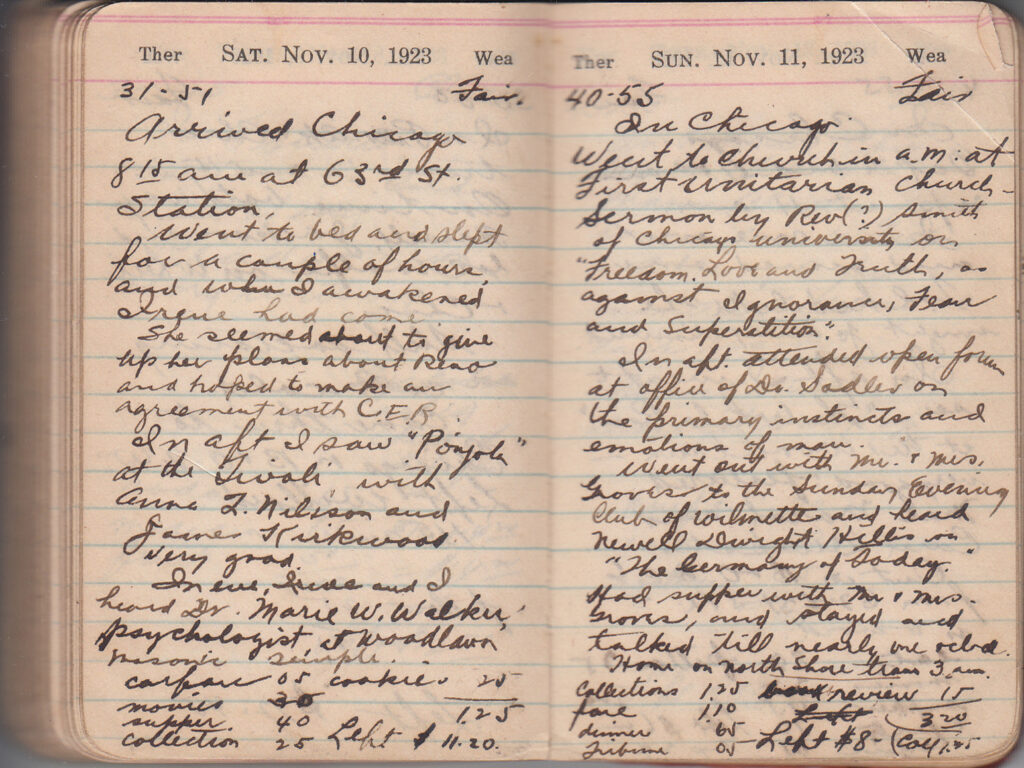 Ther SAT. NOV. 10, 1923 Wea
31-51 Fair.
Arrived Chicago
8 15 am at 63rd St.
Station.
Went to bed and slept
for a couple of hours
and when I awakened
Irene had come.
She seemed about to give
up her plans about Reno
and hoped to make an
agreement with C.E.R.
In aft I saw "Ponjola"
at the Tivoli with
Anna Q. Nilsson and
James Kirkwood.
Very good.
In eve, Irene and I
heard Dr. Marie W. Walker,
psychologist at Woodlawn
Masonic temple.
carfare 05 cookies 25
movies 30 1.25
supper 40
collection 25 Left $11.20.
Ther SUN. NOV. 11, 1923 Wea
40-55 Fair
In Chicago.
Went to Church in a.m. at
First Unitarian Church-
Sermon by Rev(?) Smith
of Chicago University on
"Freedom, Love and Truth, as
against Ignorance, Fear
and Superstition".
In aft. attended open forum
at office of Dr. Sadler on
the primary instincts and
emotions of man.
Went out with Mr. & Mrs.
Groves to the Sunday Evening
Club of Wilmette and heard
Newell Dwight Hillis on
"The Germany of Today."
Had supper with Mr & Mrs.
Groves, and stayed and
talked till nearly one oclock.
Home on North Shore train 3 a.m.
Collections 1.25 review 15
fare 1.10 3 20
dinner 65 Left $8- (Coll 1.25
Tribune 05